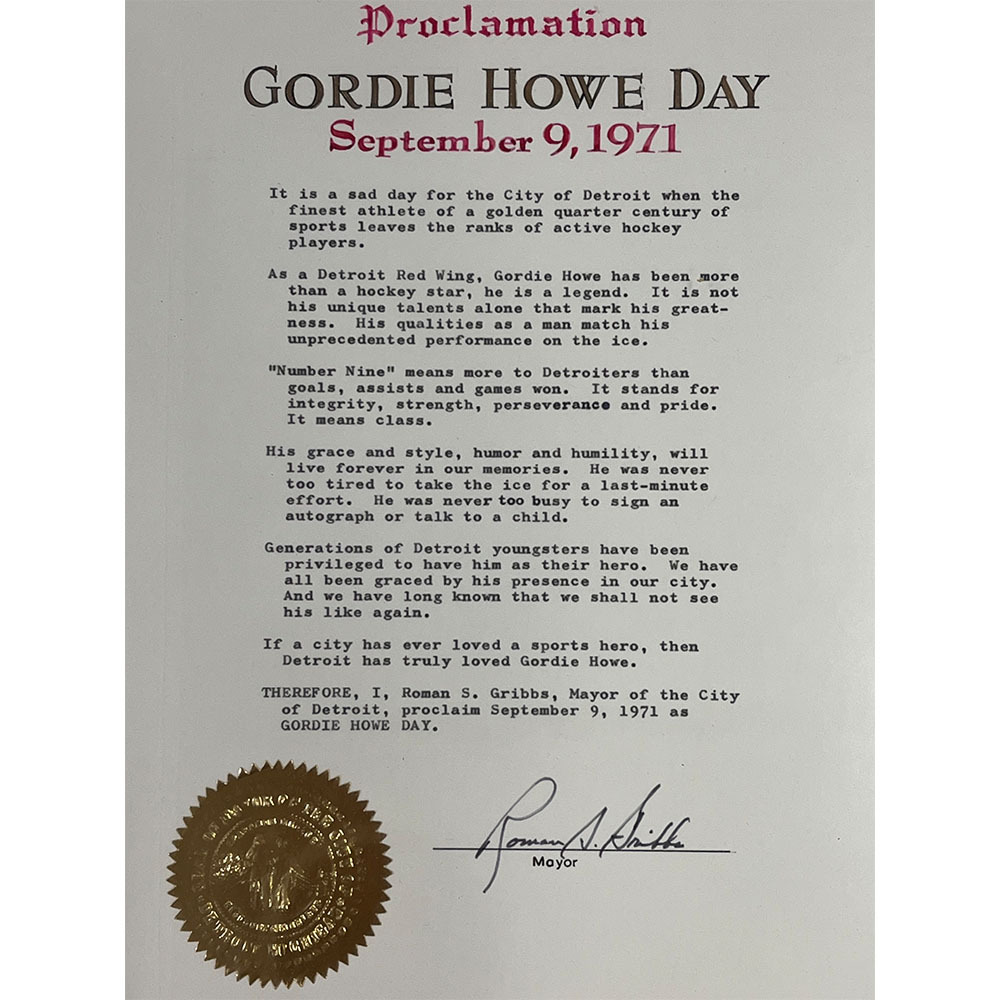 Proclamation
GORDIE HOWE DAY
September 9, 1971
It is a sad day for the City of Detroit when the
finest athlete of a golden quarter century of
sports leaves the ranks of active hockey
players.
As a Detroit Red Wing, Gordie Howe has been more
than a hockey star, he is a legend. It is not
his unique talents alone that mark his great-
ness. His qualities as a man match his
unprecedented performance on the ice.
"Number Nine" means more to Detroiters than
goals, assists and games won. It stands for
integrity, strength, perseverance and pride.
It means class.
His grace and style, humor and humility, will
live forever in our memories. He was never
too tired to take the ice for a last-minute
effort. He was never too busy to sign an
autograph or talk to a child.
Generations of Detroit youngsters have been
privileged to have him as their hero. We have
all been graced by his presence in our city.
And we have long known that we shall not see
his like again.
If a city has ever loved a sports hero, then
Detroit has truly loved Gordie Howe.
THEREFORE, I, Roman S. Gribbs, Mayor of the City
of Detroit, proclaim September 9, 1971 as
GORDIE HOWE DAY.
Roman S. Gribbs
Mayor